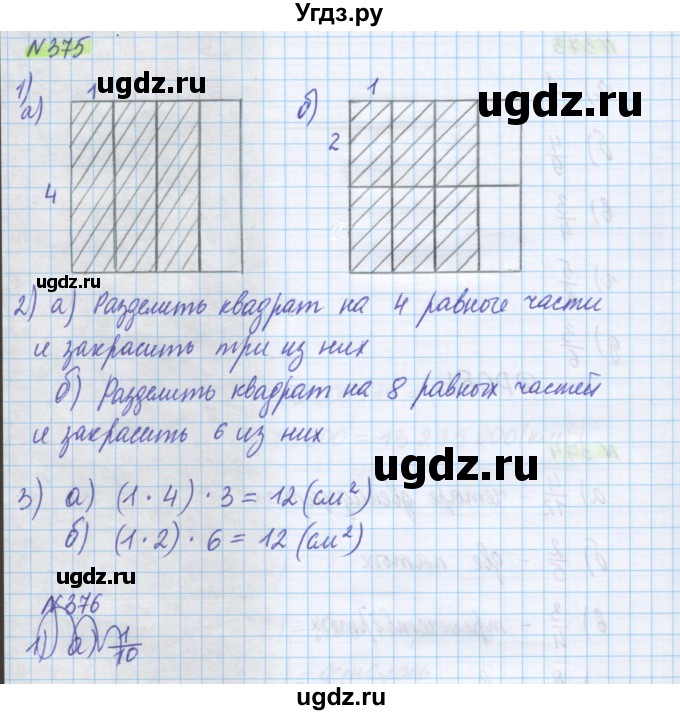 Угдз.ру
№375
1)
а) 1 4
б) 1 2
2) а) Разделить квадрат на 4 равные части
и закрасить три из них
б) Разделить квадрат на 8 равных частей
и закрасить 6 из них
3) а) (1·4)·3=12(см²)
б) (1·2)·6=12(см²)
№376
1) а) 1/10
ugdz.ru
ugdz.ru
ugdz.ru
ugdz.ru
ugdz.ru
ugdz.ru